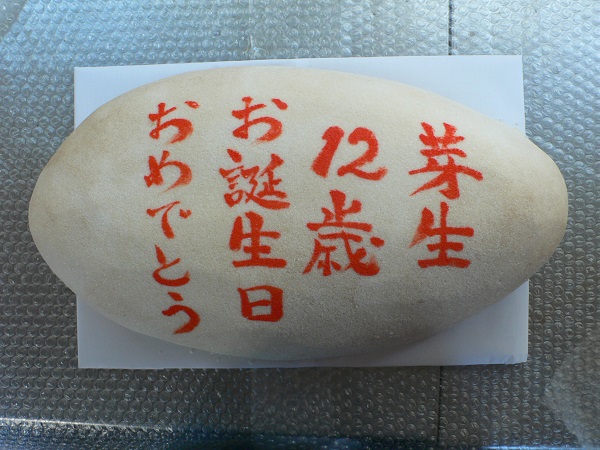 芽生
12歳
お誕生日
おめでとう